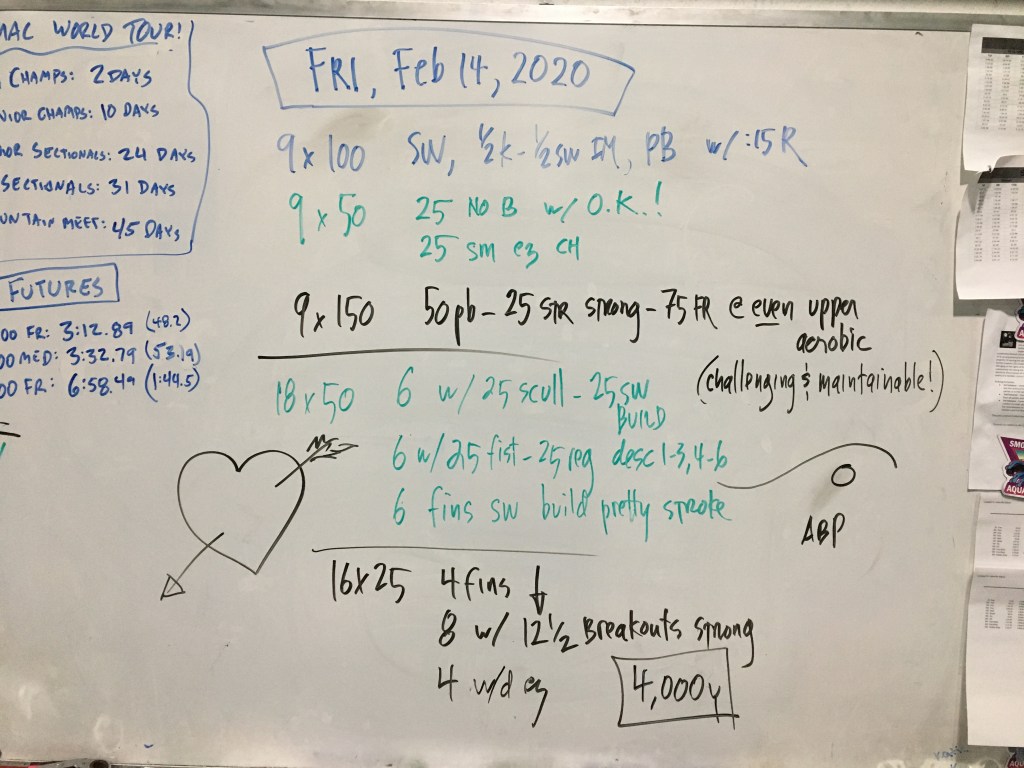 MAC WORLD TOUR!
CHAMPS: 2 DAYS
NIOR CHAMPS: 10 DAYS
OR SECTIONALS: 24 DAYS
SECTIONALS: 31 DAYS
UNTAIN MEET: 45 DAYS
FUTURES
00 FR: 3:12.89 (48.2)
00 MED: 3:32.79 (53.19)
00 FR: 6:58.49 (1:44.5)
FRI, Feb 14, 2020
9 x 100 SW, 1/2k - 1/2 SW IM, PB w/ :15 R
9 x 50 25 NO B w/ O.K.!
25 sm ez CH
9 x 150 50 pb - 25 STR strong - 75 FR @ even upper
aerobic
(challenging & maintainable!)
18 x 50 6 w/ 25 scull - 25 sw
BUILD
6 w/ 25 fist - 25 reg desc 1-3, 4-6
6 fins sw build pretty stroke
ABP
16 x 25 4 fins ↓
8 w/ 12 1/2 Breakouts strong
4 w/d ez
4,000y
SMO
AQUA